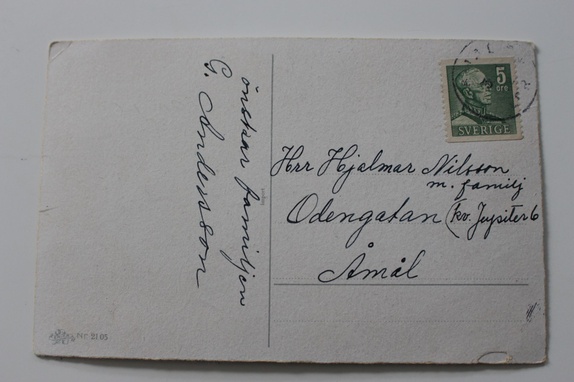 önskar familjen
G. Andersson
5
öre
SVERIGE
Herr Hjalmar Nilsson
m. familj
Odengatan (kv. Jupiter 6
Åmål
Nr. 2103